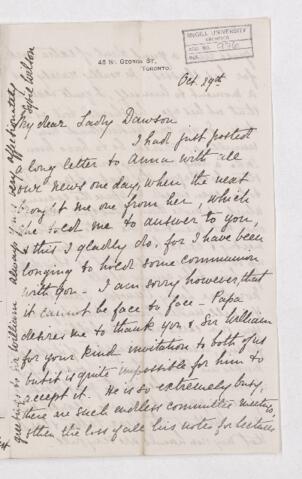 45 ST. GEORGE ST.
TORONTO.
McGILL UNIVERSITY
ARCHIVES
ACC. NO.
REF.
Oct 29th
My dear Lady Dawson
I had just posted
a long letter to Anna with all
our news one day, when the next
brought me one from her, which
she told me to answer to you,
& this I gladly do, for I have been
longing to hold some communion
with you - I am sorry however, that
it cannot be face to face - Papa
desires me to thank you & Sir William
for your kind invitation to both of us
but it is quite impossible for him to
accept it. He is so extremely busy,
there are such endless committee meetings,
& then the loss of all his notes for lectures
greetings to Sir William always yours very affectionately
Sybil Wilson